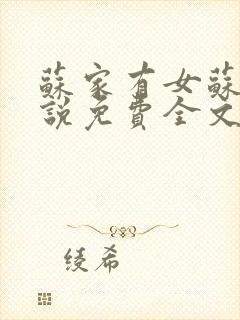 蘇家有女蘇
說免費全文
綾希